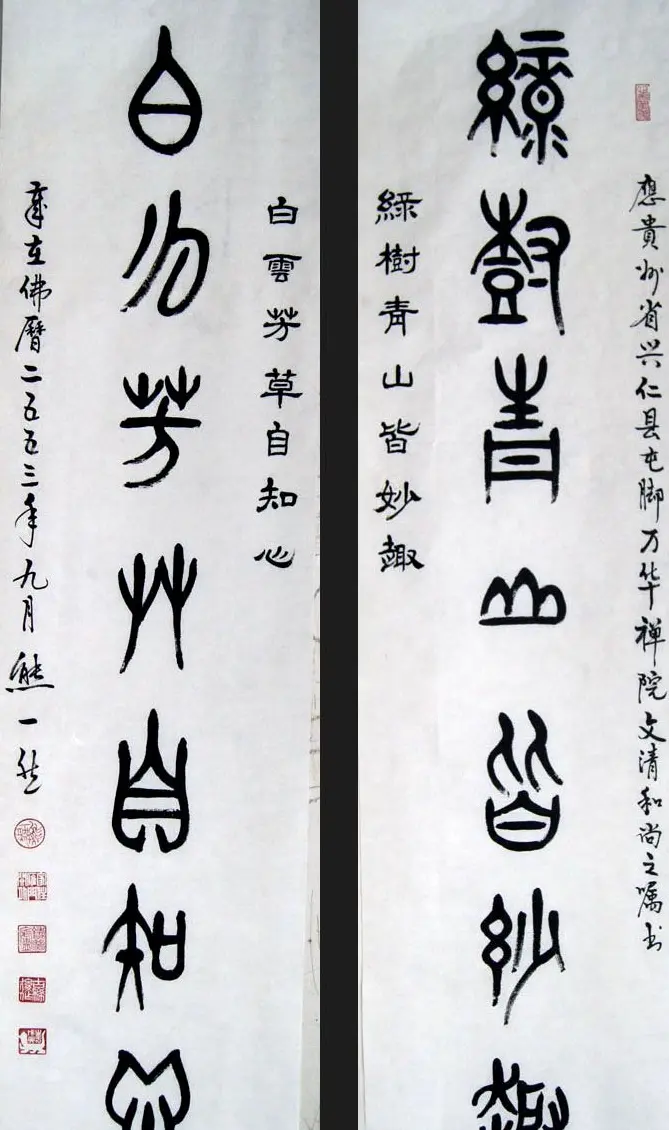 應貴州省兴仁县屯脚万华禅院文清和尚之嘱书
綠樹青山皆妙趣
綠樹青山皆妙趣
白雲芳草自知心
白云芳艸自知心
歲在佛曆二五五三年九月熊一然